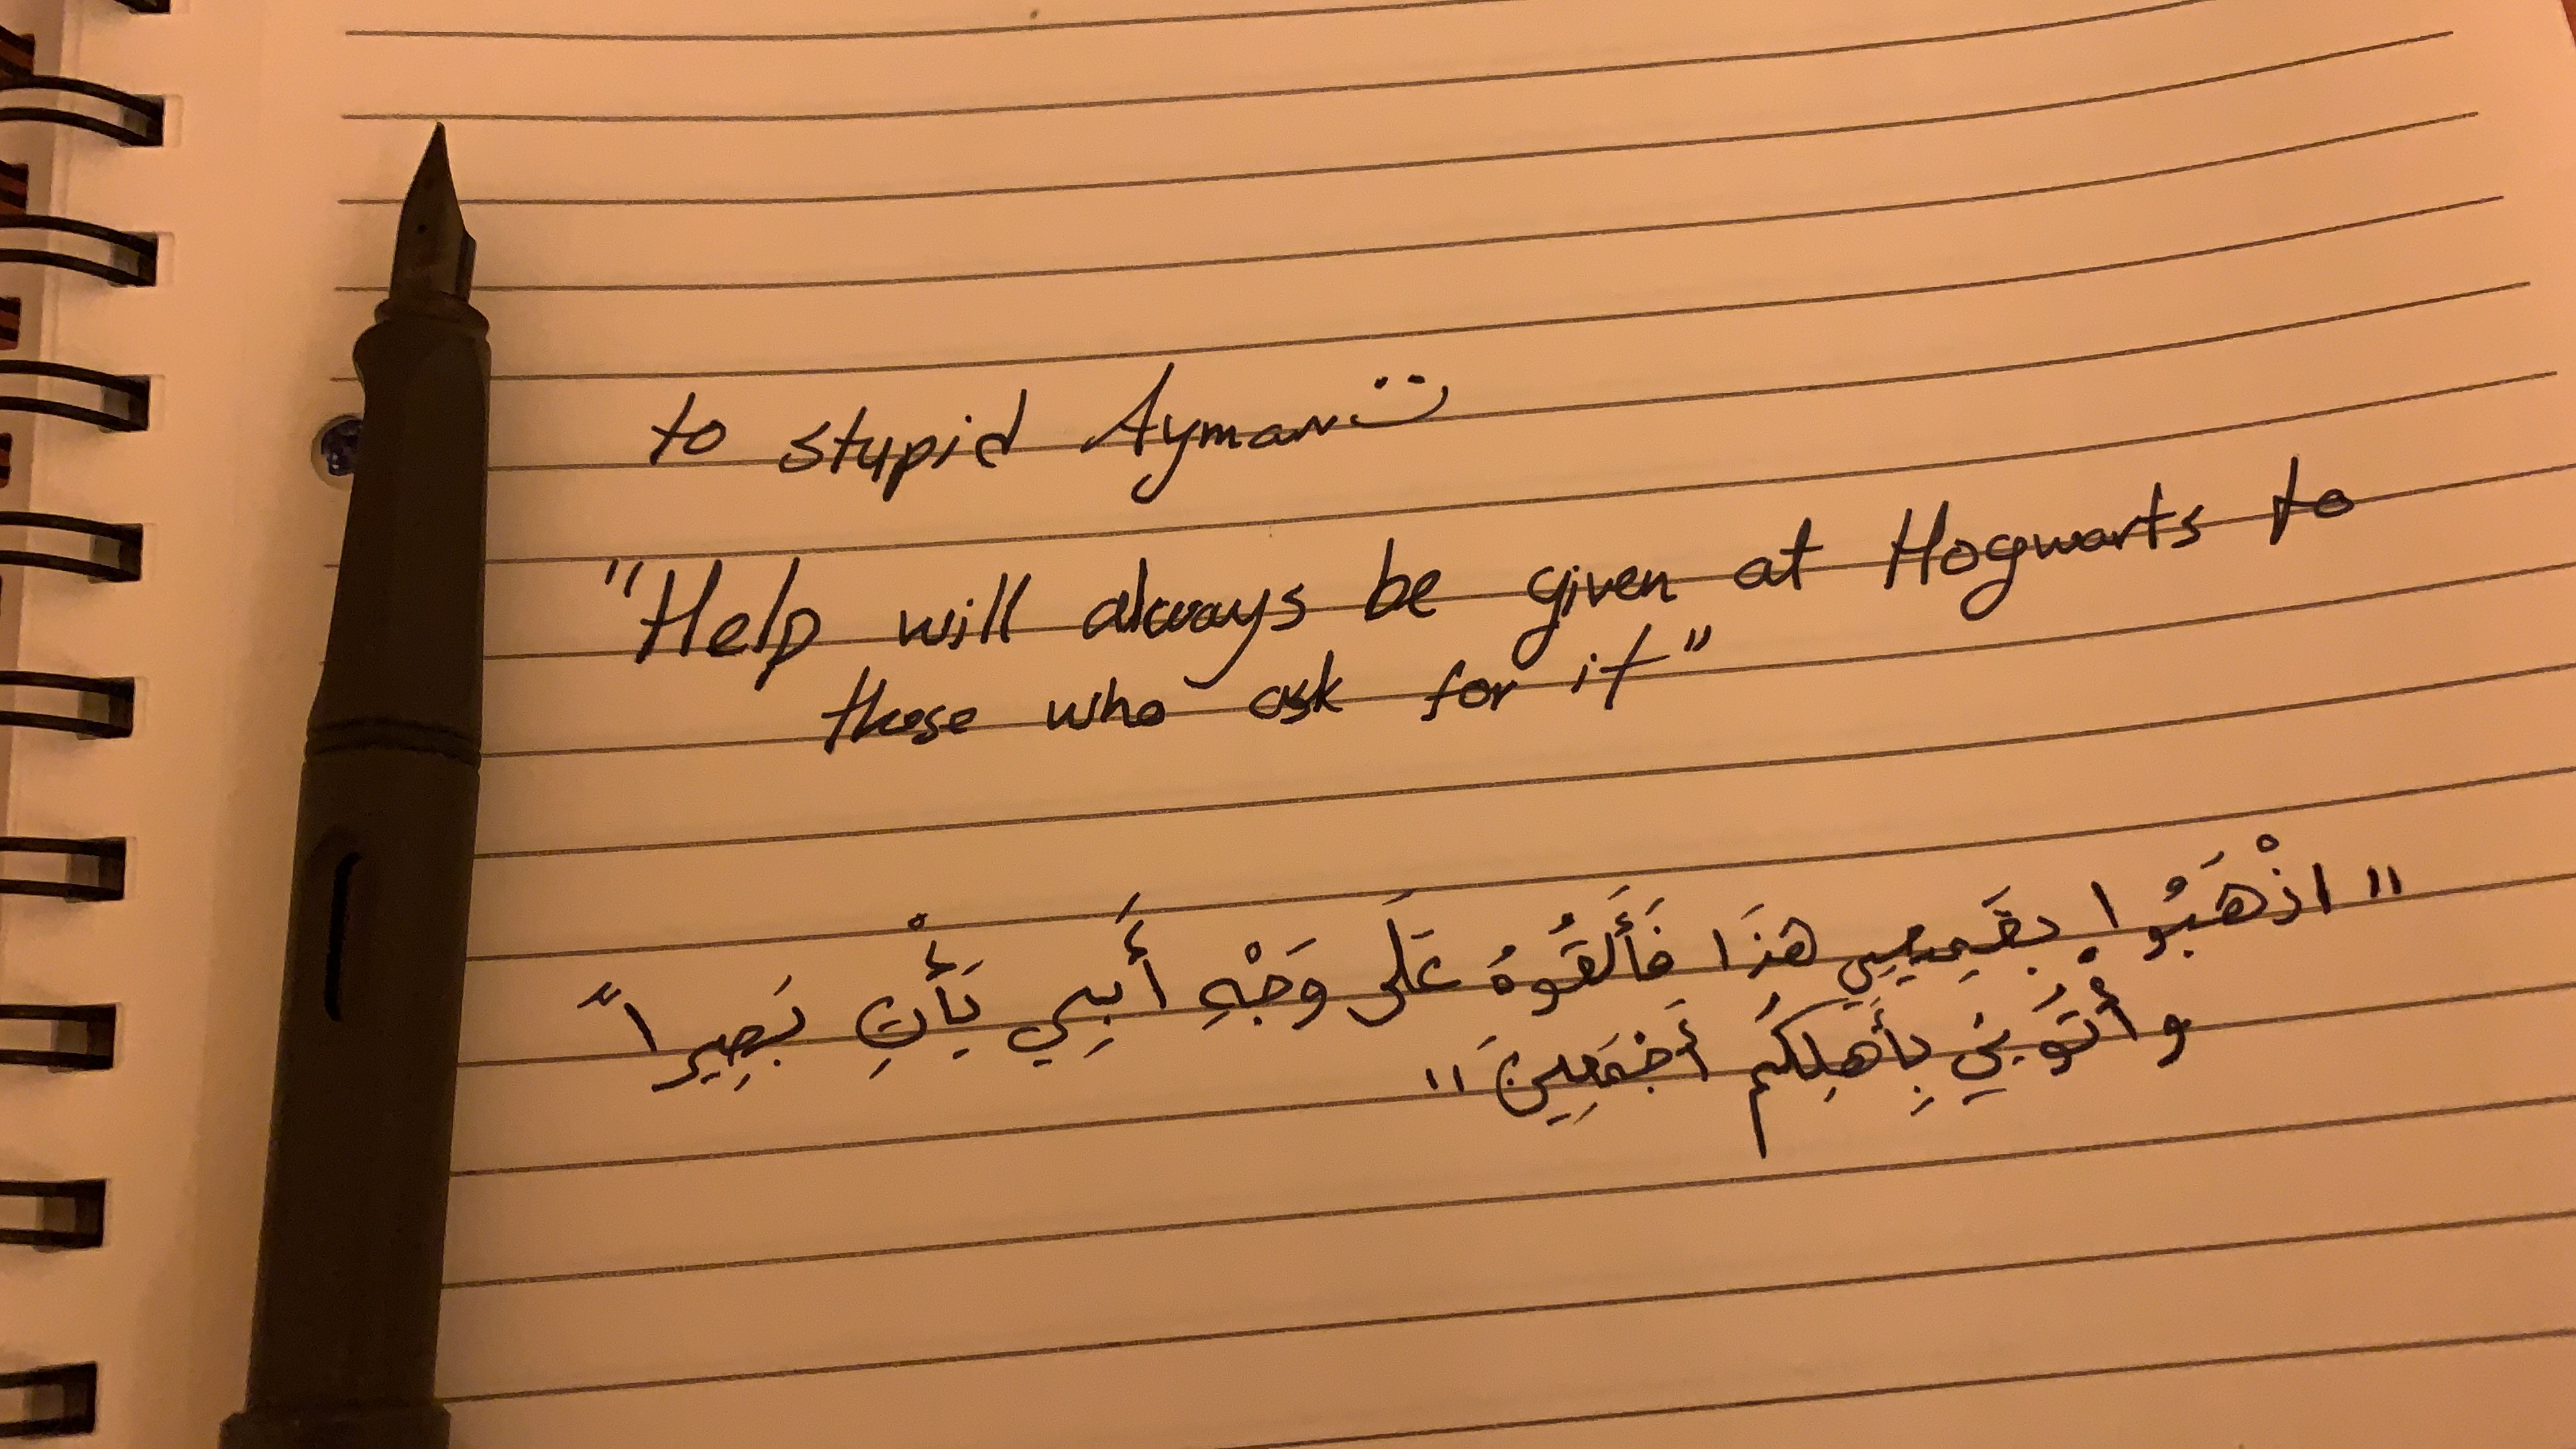 to stupid Ayman :)
"Help will always be given at Hogwarts to
those who ask for it"
"اذْهَبُوا بِقَمِيصِي هَذَا فَأَلقُوهُ عَلَى وَجْهِ أَبِي يَأْتِ بَصِيراً
وأْتُونِي بِأَهلِكُم أَجْمَعِينَ"